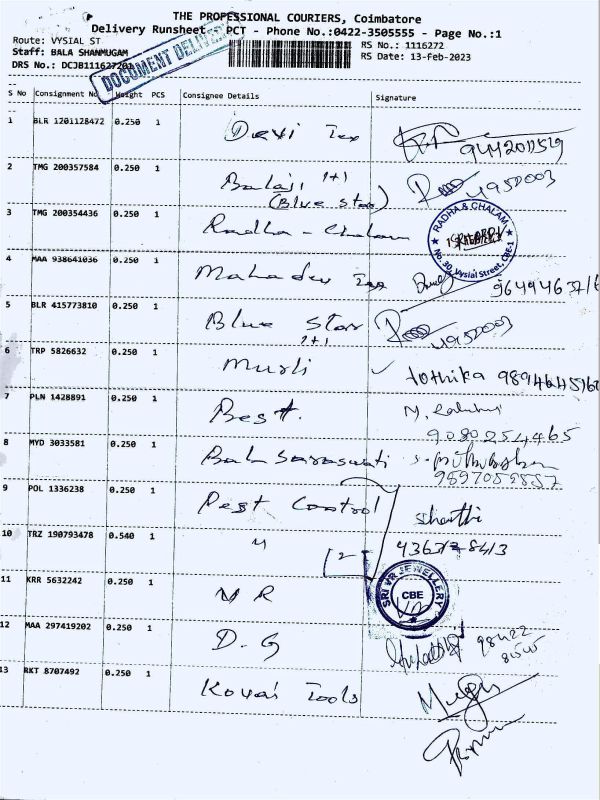 THE PROFESSIONAL COURIERS, Coimbatore
Delivery Runsheet - PCT - Phone No.:0422-3505555 - Page No.:1
Route: VYSIAL ST
RS No.: 1116272
Staff: BALA SHANMUGAM
RS Date: 13-Feb-2023
DRS No.: DCJB111627201
DOCUMENT DELIVERY
S No Consignment No Weight PCS Consignee Details Signature
1 BLR 1201128472 0.250 1 Devi Tex
2 TMG 200357584 0.250 1 Balaji 1+1
(Blue Star)
3 TMG 200354436 0.250 1 Radha - Chalam
RADHA & CHALAM
No. 30, Vysial Street, CBE-1
4 MAA 938641036 0.250 1 Mahadev Tex
5 BLR 415773810 0.250 1 Blue Star
1+1
6 TRP 5826632 0.250 1 Murli
7 PLN 1428891 0.250 1 Best.
9080254465
8 MYD 3033581 0.250 1 Bala Saraswati
9 POL 1336238 0.250 1 Pest Control
10 TRZ 190793478 0.540 1 [2]
11 KRR 5632242 0.250 1 M R
SRI VR JEWELLERY
CBE
12 MAA 297419202 0.250 1 D. G
13 RKT 8707492 0.250 1 Kovai Tools